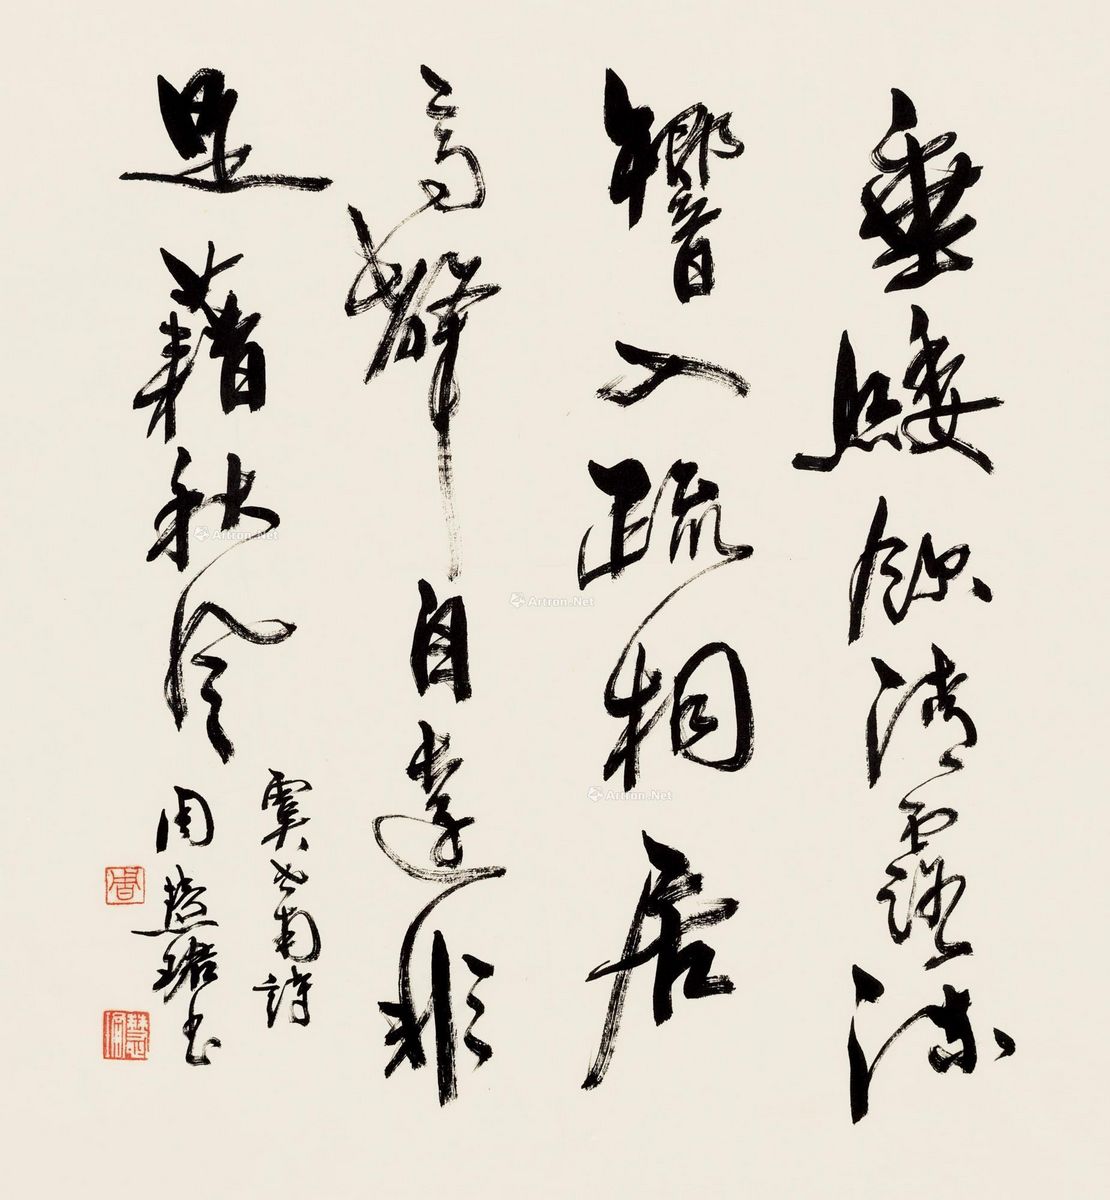 垂緌飲清露流
響入疏桐居
高聲自遠非
是藉秋風
虞世南詩
周慧珺书
周
慧珺
Artron.Net
Artron.Net
Artron.Net